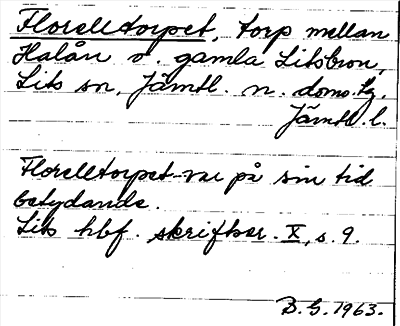 Florelltorpet, torp mellan
Halån o. gamla Litsbron,
Lits sn, Jämtl. n. doms.hg.
Jämtl. l.
Florelltorpet var på sin tid
betydande.
Lits hbf. skrifser. X, s. 9.
D. G. 1963.